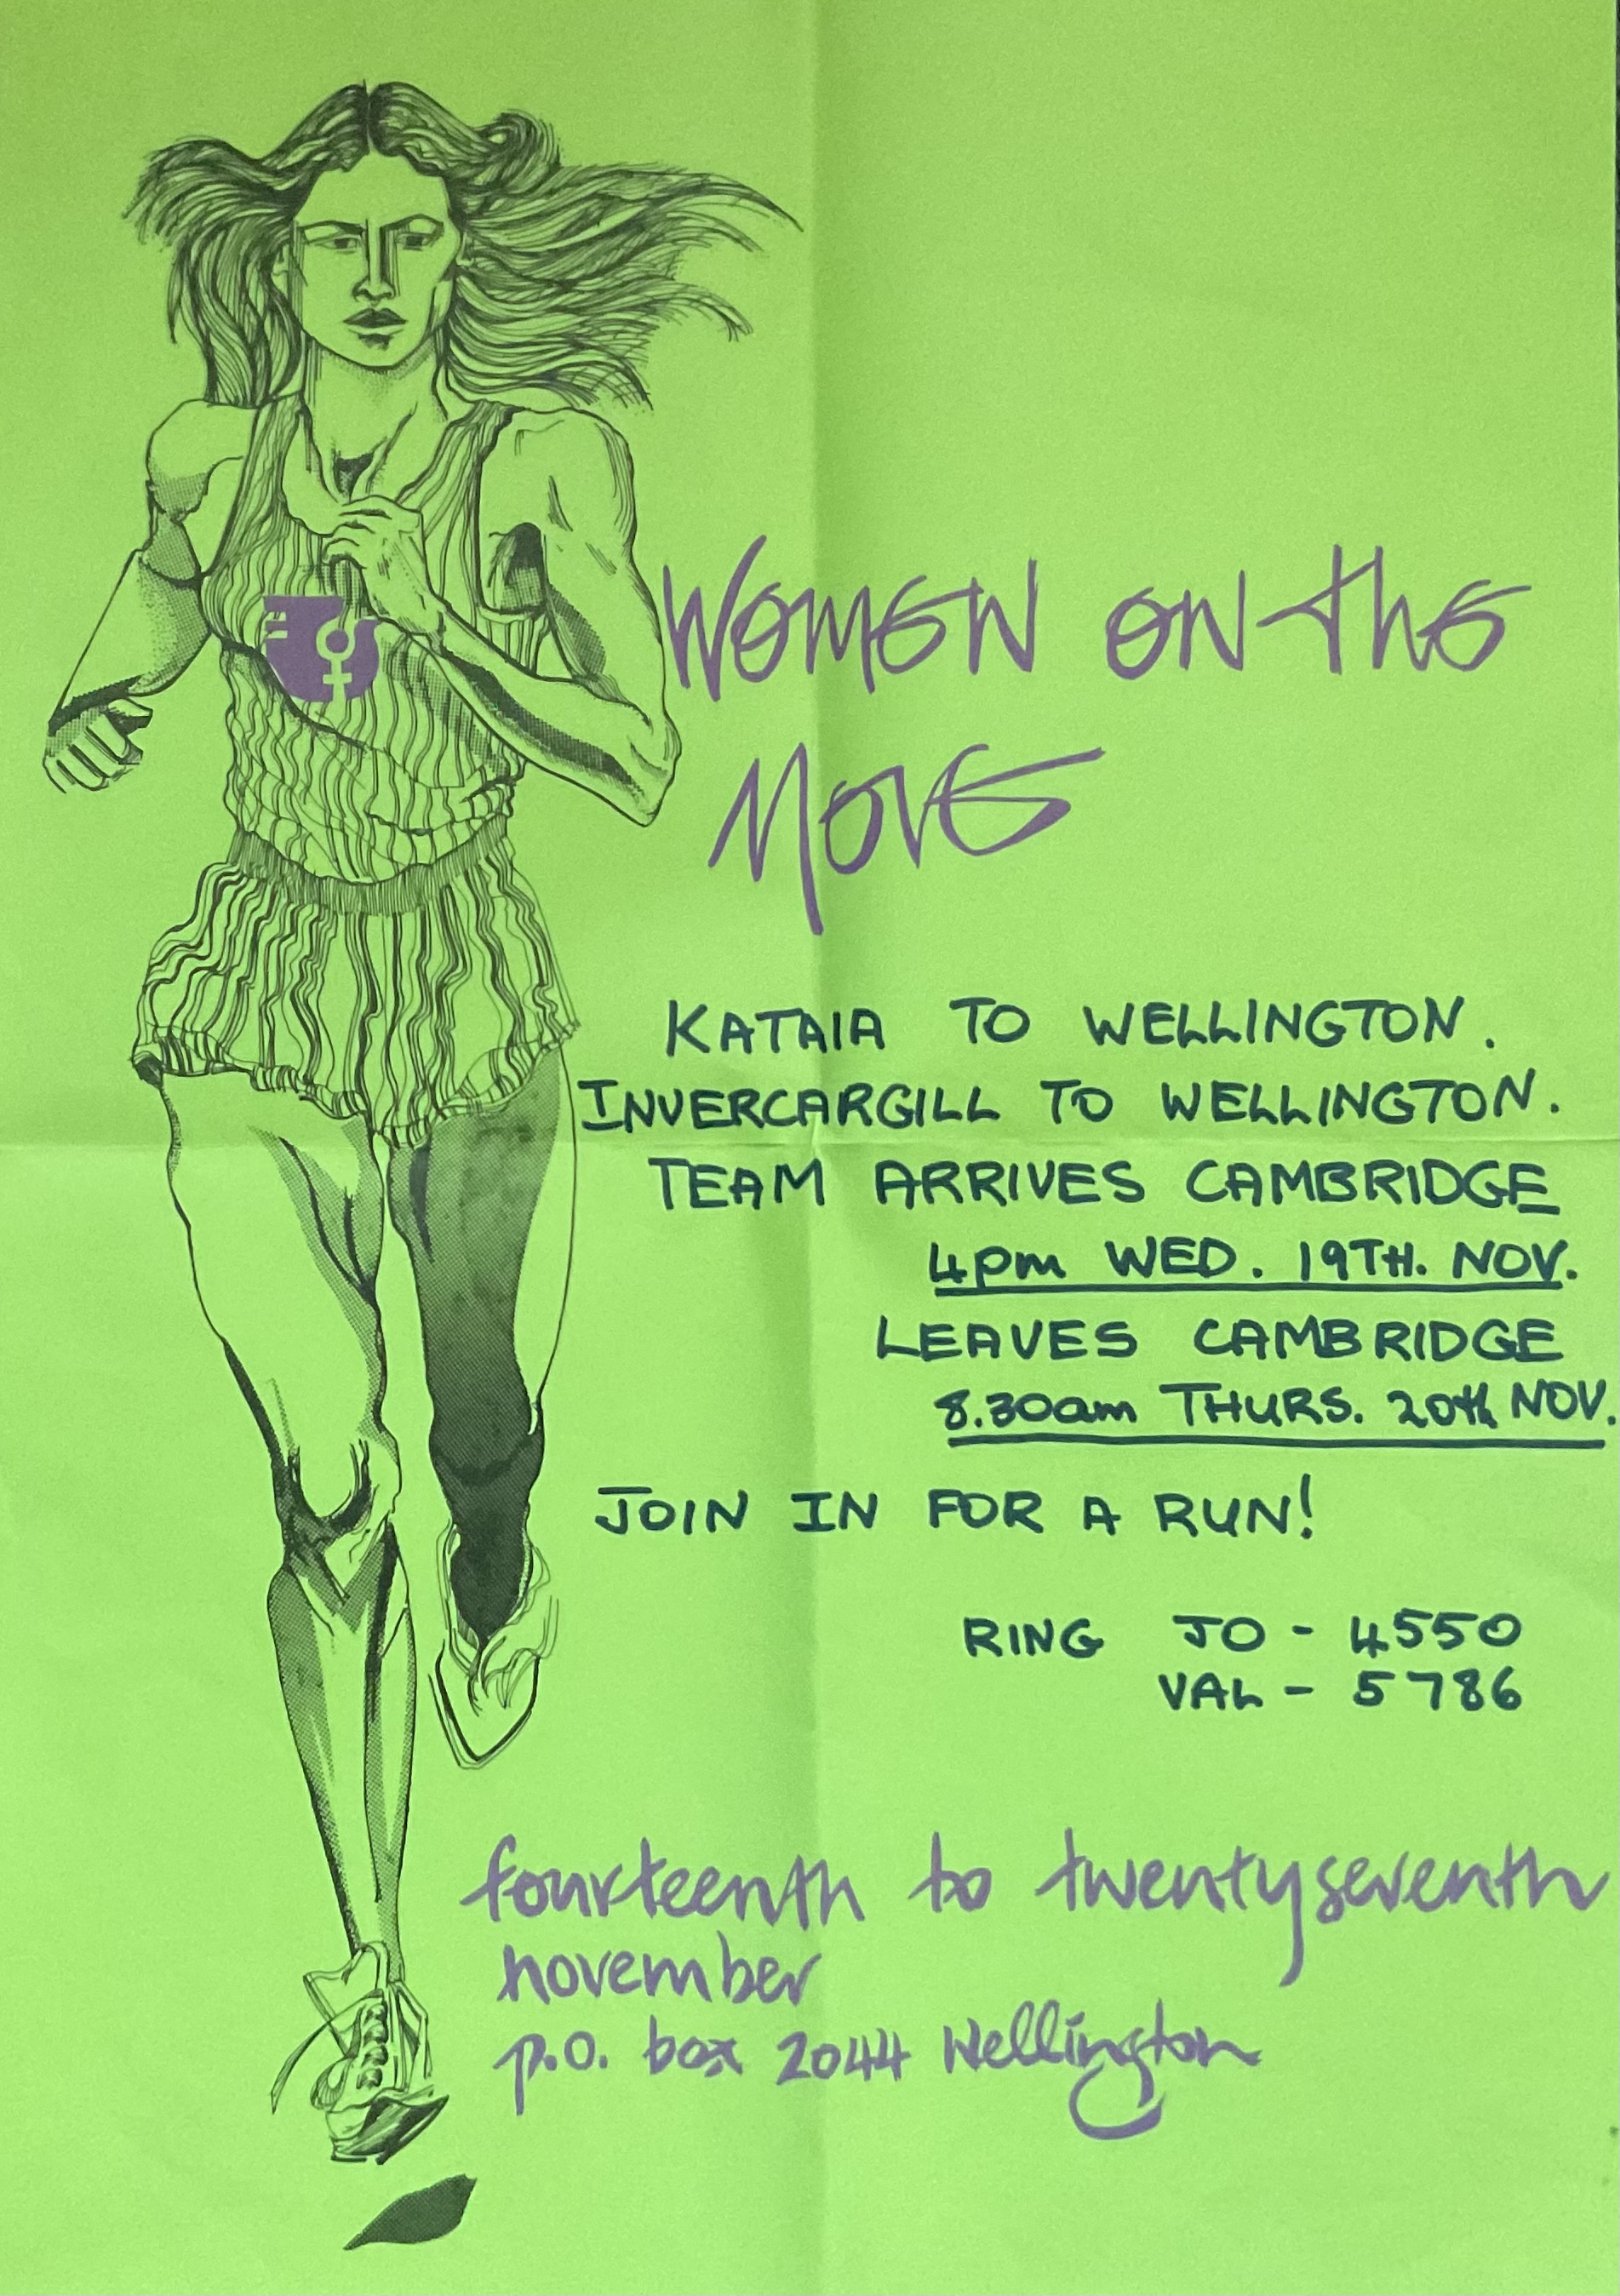 Women on the
Move
KATAIA TO WELLINGTON.
INVERCARGILL TO WELLINGTON.
TEAM ARRIVES CAMBRIDGE
4pm WED. 19TH. NOV.
LEAVES CAMBRIDGE
8.30am THURS. 20th NOV.
JOIN IN FOR A RUN!
RING JO - 4550
VAL - 5786
fourteenth to twentyseventh
november
p.o. box 2044 Wellington